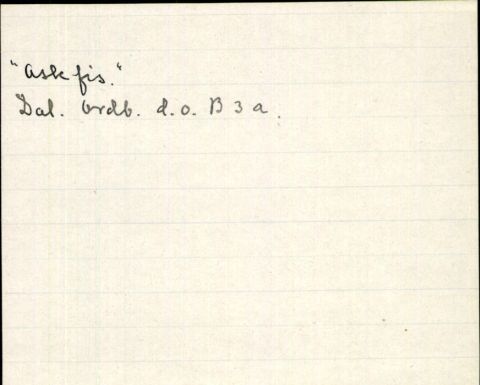 "Askfis."
Dal. Ordb. d.o. B 3 a.